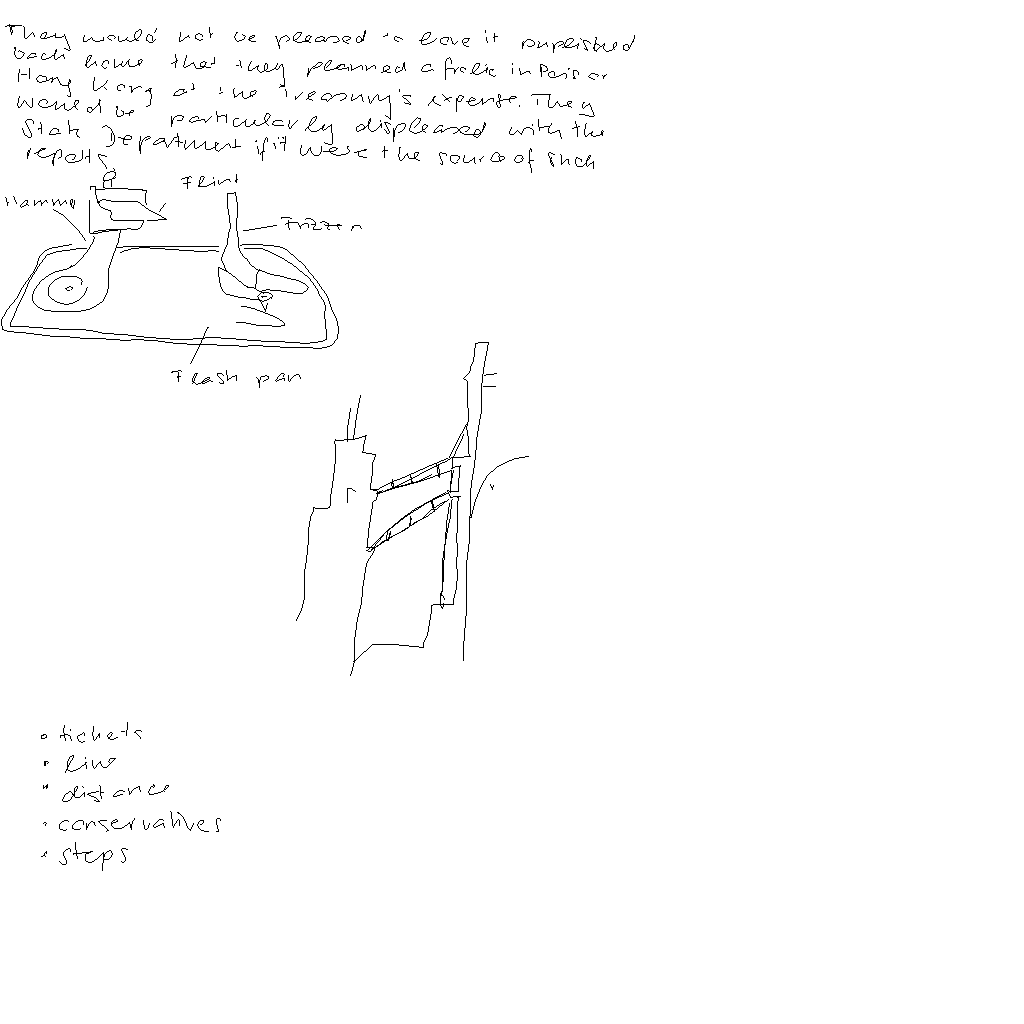 They would not be pleased to have it puplished
back home that they planned a frolic in Paris or
Hong Kong at the Treasury's expense. They
would be particularly displeased with the
State Department if it were the source of such
reports
Flint
Hammer
Frizzen
Flash pan
• tickets
• line
• distance
• conservatives
• steps